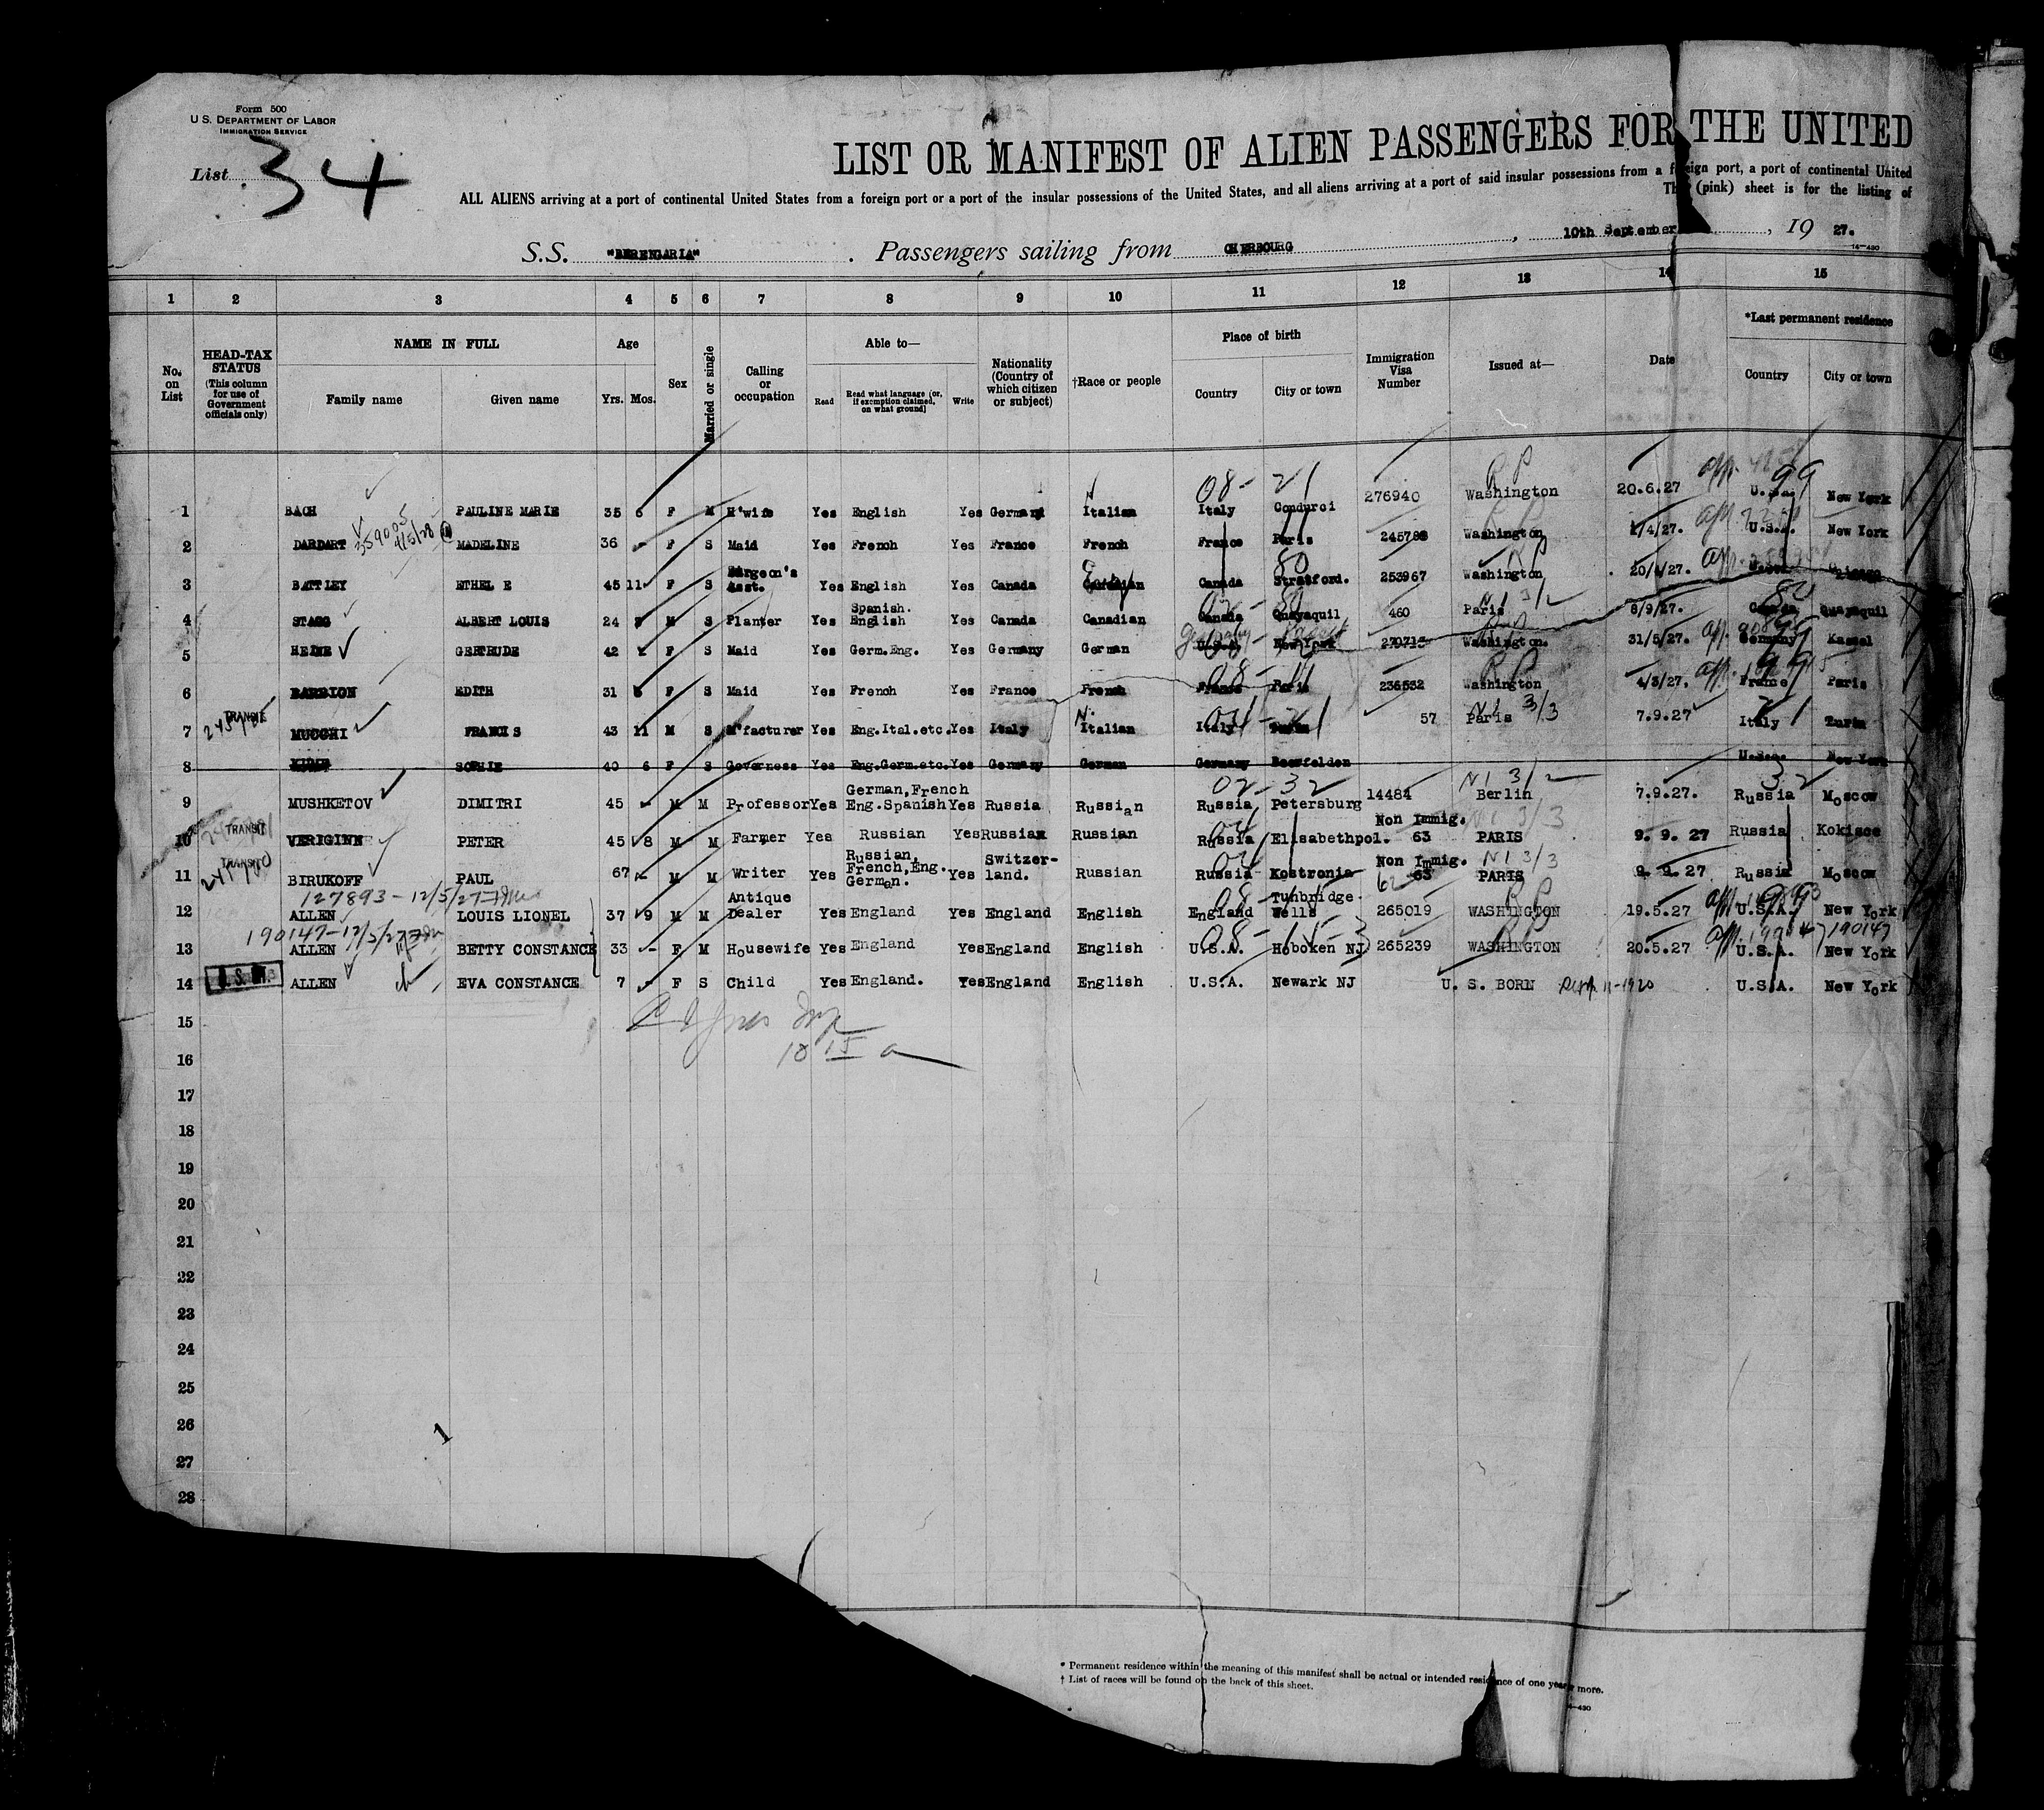 Form 500
U. S. DEPARTMENT OF LABOR
IMMIGRATION SERVICE
List 34
LIST OR MANIFEST OF ALIEN PASSENGERS FOR THE UNITED
ALL ALIENS arriving at a port of continental United States from a foreign port or a port of the insular possessions of the United States, and all aliens arriving at a port of said insular possessions from a foreign port, a port of continental United
This (pink) sheet is for the listing of
S.S. "BERENGARIA" . Passengers sailing from CHERBOURG , 10th September , 19 27.
14—430
1 2 3 4 5 6 7 8 9 10 11 12 13 14 15
No. on List
HEAD-TAX STATUS (This column for use of Government officials only)
NAME IN FULL
Family name Given name
Age
Yrs. Mos.
Sex
Married or single
Calling or occupation
Able to—
Read Read what language (or, if exemption claimed, on what ground) Write
Nationality (Country of which citizen or subject)
†Race or people
Place of birth
Country City or town
Immigration Visa Number
Issued at—
Date
*Last permanent residence
Country City or town
1 BACH PAULINE MARIE 35 6 F M H'wife Yes English Yes Germany Italian Italy Condurci 276940 Washington 20.6.27 U.S.A. New York
2 DARDART MADELINE 36 - F S Maid Yes French Yes France French France Paris Washington /4/27. U.S.A. New York
3 BATTLEY ETHEL E 45 11 F S Surgeon's Asst. Yes English Yes Canada Canadian Canada Stratford. 253967 Washington 20/4/27. Chicago
4 STAGG ALBERT LOUIS 24 M S Planter Yes Spanish. English Yes Canada Canadian Canada Guayaquil 460 Paris 8/9/27. Canada Guayaquil
5 HEINE GERTRUDE 42 F S Maid Yes Germ.Eng. Yes Germany German U.S.A. New York Washington. 31/5/27. Germany Kassel
6 BARBION EDITH 31 F S Maid Yes French Yes France French France Paris 236532 Washington 4/3/27. France Paris
7 TRANSIT MUCCHI FRANCIS 43 11 M S M'facturer Yes Eng.Ital.etc. Yes Italy Italian Italy Turin 57 Paris 7.9.27 Italy Turin
8 SOPHIE 40 6 F S Governess Yes Eng.Germ.etc. Yes Germany German Germany Beerfelden U.S.A. New York
9 MUSHKETOV DIMITRI 45 - M M Professor Yes German,French Eng.Spanish Yes Russia Russian Russia Petersburg 14484 Berlin 7.9.27. Russia Moscow
10 TRANSIT VERIGINN PETER 45 8 M M Farmer Yes Russian Yes Russian Russian Russia Elisabethpol. Non Immig. 63 PARIS 9. 9. 27 Russia Kokisce
11 TRANSIT BIRUKOFF PAUL 67 - M M Writer Yes Russian, French,Eng. German. Yes Switzer-land. Russian Russia Kostronia Non Immig. 63 62 PARIS 9. 9. 27 Russia Moscow
127893 - 12/5/27
12 ALLEN LOUIS LIONEL 37 9 M M Antique Dealer Yes England Yes England English England Tunbridge Wells 265019 WASHINGTON 19.5.27 U.S.A. New York
190147-12/5/27
13 ALLEN BETTY CONSTANCE 33 - F M Housewife Yes England Yes England English U.S.A. Hoboken NJ 265239 WASHINGTON 20.5.27 190147 U.S.A. New York
14 ALLEN EVA CONSTANCE 7 - F S Child Yes England. Yes England English U.S.A. Newark NJ U. S. BORN U.S.A. New York
15
16
17
18
19
20
21
22
23
24
25
26
27
28
* Permanent residence within the meaning of this manifest shall be actual or intended residence of one year or more.
† List of races will be found on the back of this sheet.